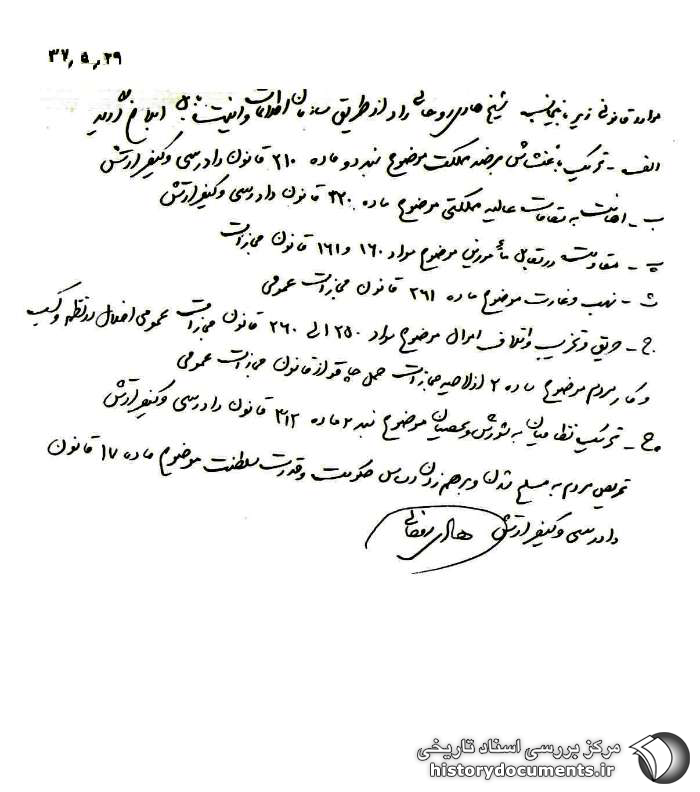 ۳۷,۵,۲۹
موارد قانونی زیر به اینجانب شیخ هادی روحانی راد از طریق سازمان اطلاعات و امنیت بابل ابلاغ گردید
الف - تحریک باغتشاش بر ضد مملکت موضوع بند دو ماده ۳۱۰ قانون دادرسی و کیفر ارتش
ب - اهانت به مقامات عالیه مملکتی موضوع ماده ۳۳۰ قانون دادرسی و کیفر ارتش
پ - مقاومت در مقابل مأمورین موضوع مواد ۱۶۰ و ۱۶۱ قانون مجازات
ث - نهب و غارت موضوع ماده ۲۶۱ قانون مجازات عمومی
ج - حریق و تخریب و اتلاف اموال موضوع مواد ۲۵۰ الی ۲۶۰ قانون مجازات عمومی اخلال در نظم و کسب
و کار مردم موضوع ماده ۲ از لایحه مجازات حمل چاقو از قانون مجازات عمومی
ح - تحریک نظامیان به شورش و عصیان موضوع بند ۲ ماده ۳۱۲ قانون دادرسی و کیفر ارتش
تحریص مردم به مسلح شدن و برهم زدن اساس حکومت و قدرت سلطنت موضوع ماده ۱۷ قانون
دادرسی و کیفر ارتش هادی روحانی
مرکز بررسی اسناد تاریخی
historydocuments.ir